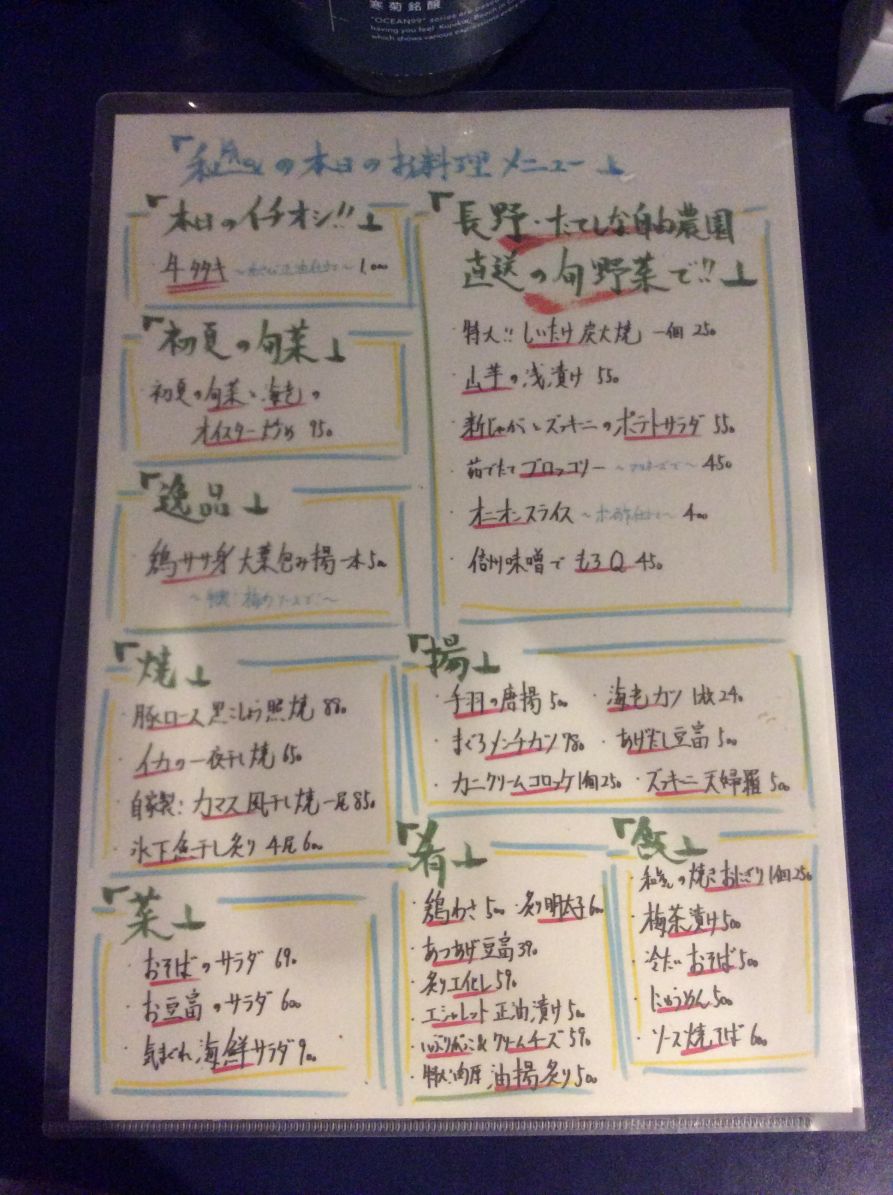 寒菊銘醸
"OCEAN99" series are
having you feel Kujukuri
which shows various expressions
の本日のお料理メニュー」
『本日のイチオシ!!』
牛タタキ 1,000
『初夏の旬菜』
初夏の旬菜と海老の
オイスター炒め 950
『逸品』
鶏ササ身大葉包み揚一本500
梅肉ソースで〜
『長野・たてしな自由農園
直送の旬野菜で!!』
・特大!!しいたけ炭火焼 一個 250
・山芋の浅漬け 550
・新じゃがとズッキーニのポテトサラダ 550
・茹でたてブロッコリー 〜マヨネーズで〜 450
・オニオンスライス 〜ポン酢仕立て〜 400
・信州味噌でもろQ 450
『焼』
・豚ロース黒こしょう照焼 880
・イカの一夜干し焼 650
・自家製!カマス風干し焼 一尾 850
・氷下魚干し炙り 4尾 600
『揚』
・手羽の唐揚 500 ・海老カツ 1枚 240
・まぐろメンチカツ 780 ・あげだし豆富 500
・カニクリームコロッケ 1個 250 ・ズッキーニ天婦羅 500
『菜』
・おそばのサラダ 690
・お豆富のサラダ 600
・気まぐれ海鮮サラダ 900
『肴』
・鶏わさ 500 ・炙り明太子 600
・あつあげ豆富 390
・炙り〆化し 590
・エシャレット正油漬け 500
・いぶりがっこ&クリームチーズ 590
・特大!肉厚油揚炙り 500
『飯』
の焼きおにぎり 1個 250
・梅茶漬け 500
・冷たいおそば 500
・にゅうめん 500
・ソース焼そば 600